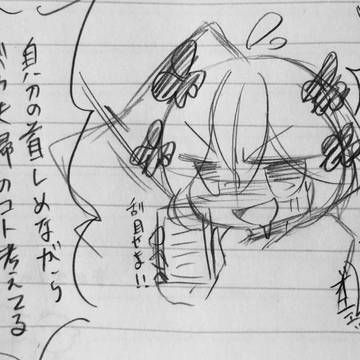 刮目せよ!!
自分の首しめながら
夫婦のコト考えてる